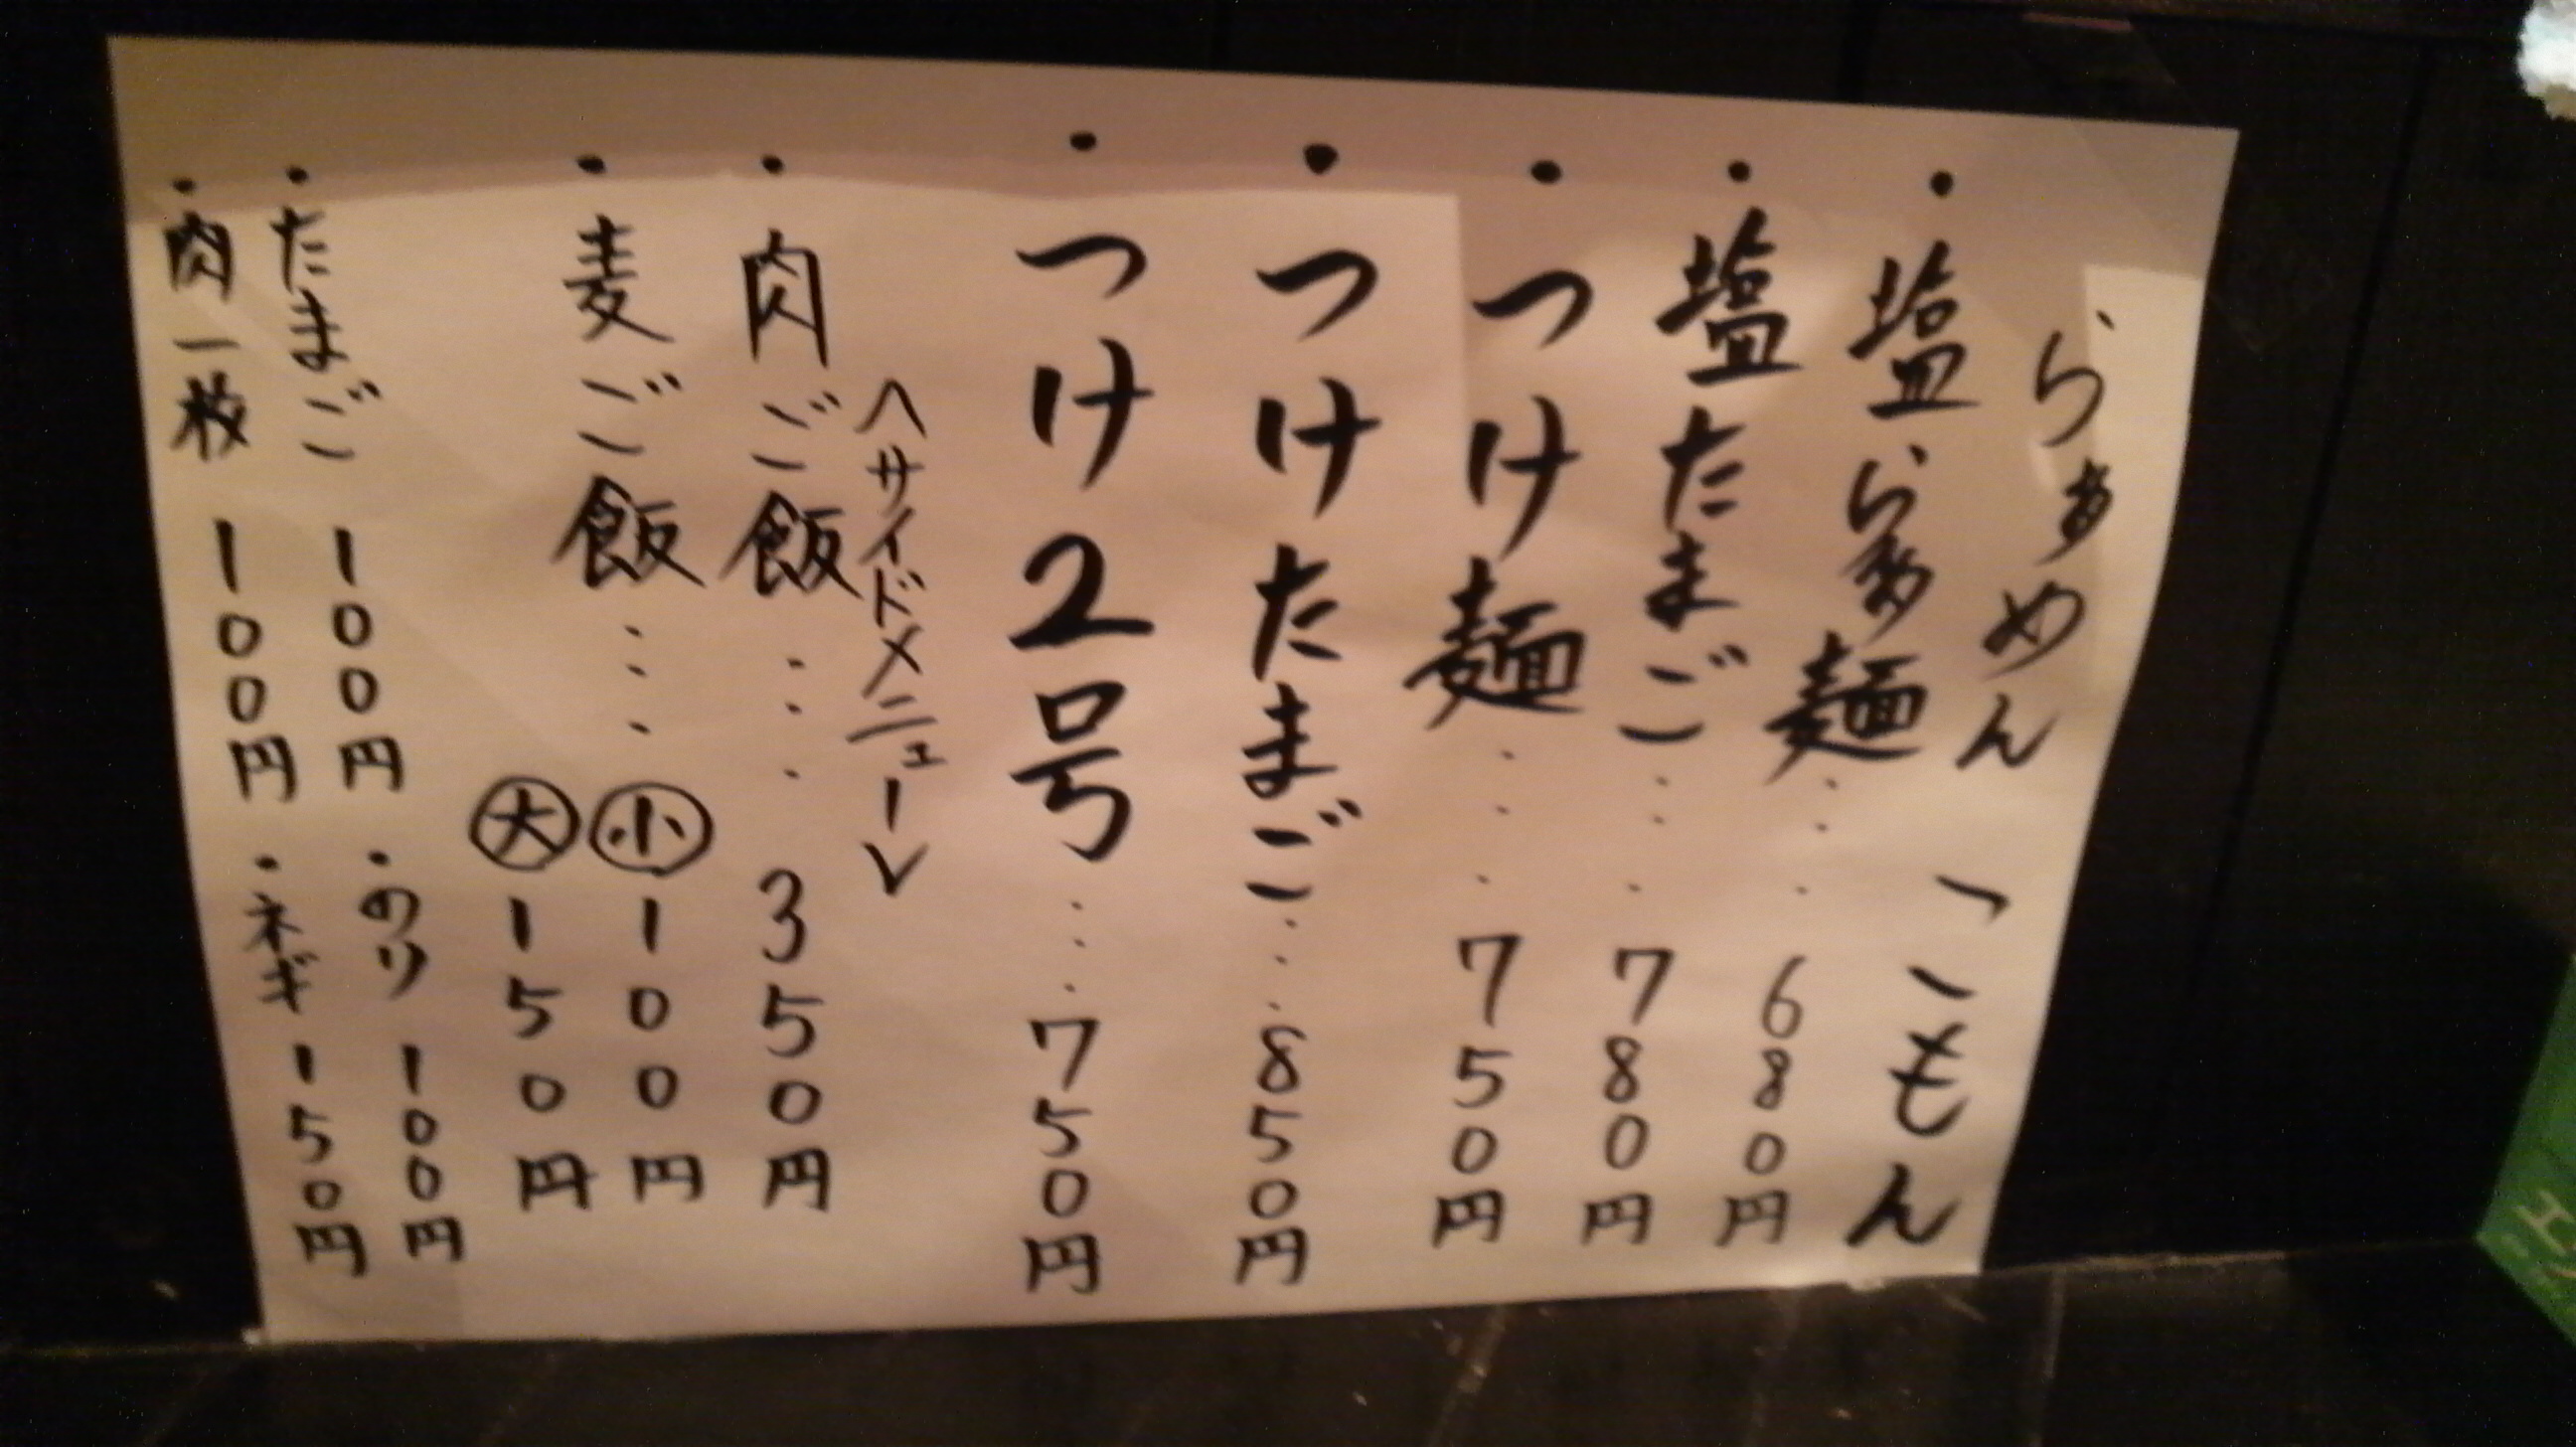 らぁめん こもん
・塩らぁ麺・・・680円
・塩たまご・・・780円
・つけ麺・・・750円
・つけたまご・・・850円
・つけ2号・・・750円
<サイドメニュー>
・肉ご飯・・・350円
・麦ご飯・・・小100円
大150円
・たまご 100円 ・のり 100円
・肉一枚 100円 ・ネギ 150円